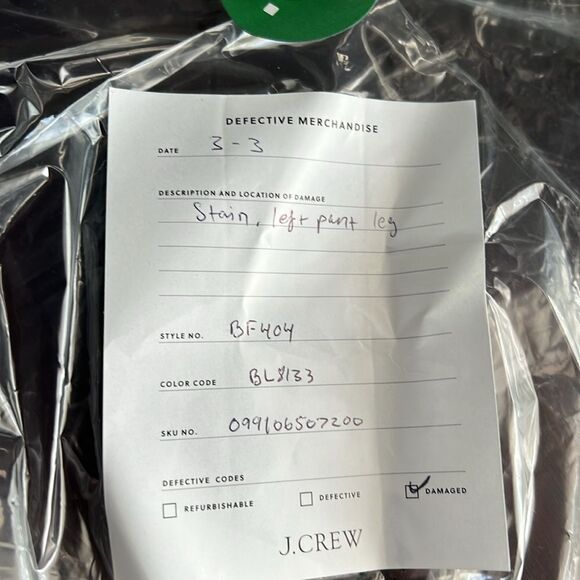 DEFECTIVE MERCHANDISE
DATE 3-3
DESCRIPTION AND LOCATION OF DAMAGE
Stain, left pant leg
STYLE NO. BF404
COLOR CODE BL8133
SKU NO. 099106507200
DEFECTIVE CODES
REFURBISHABLE DEFECTIVE DAMAGED
J.CREW